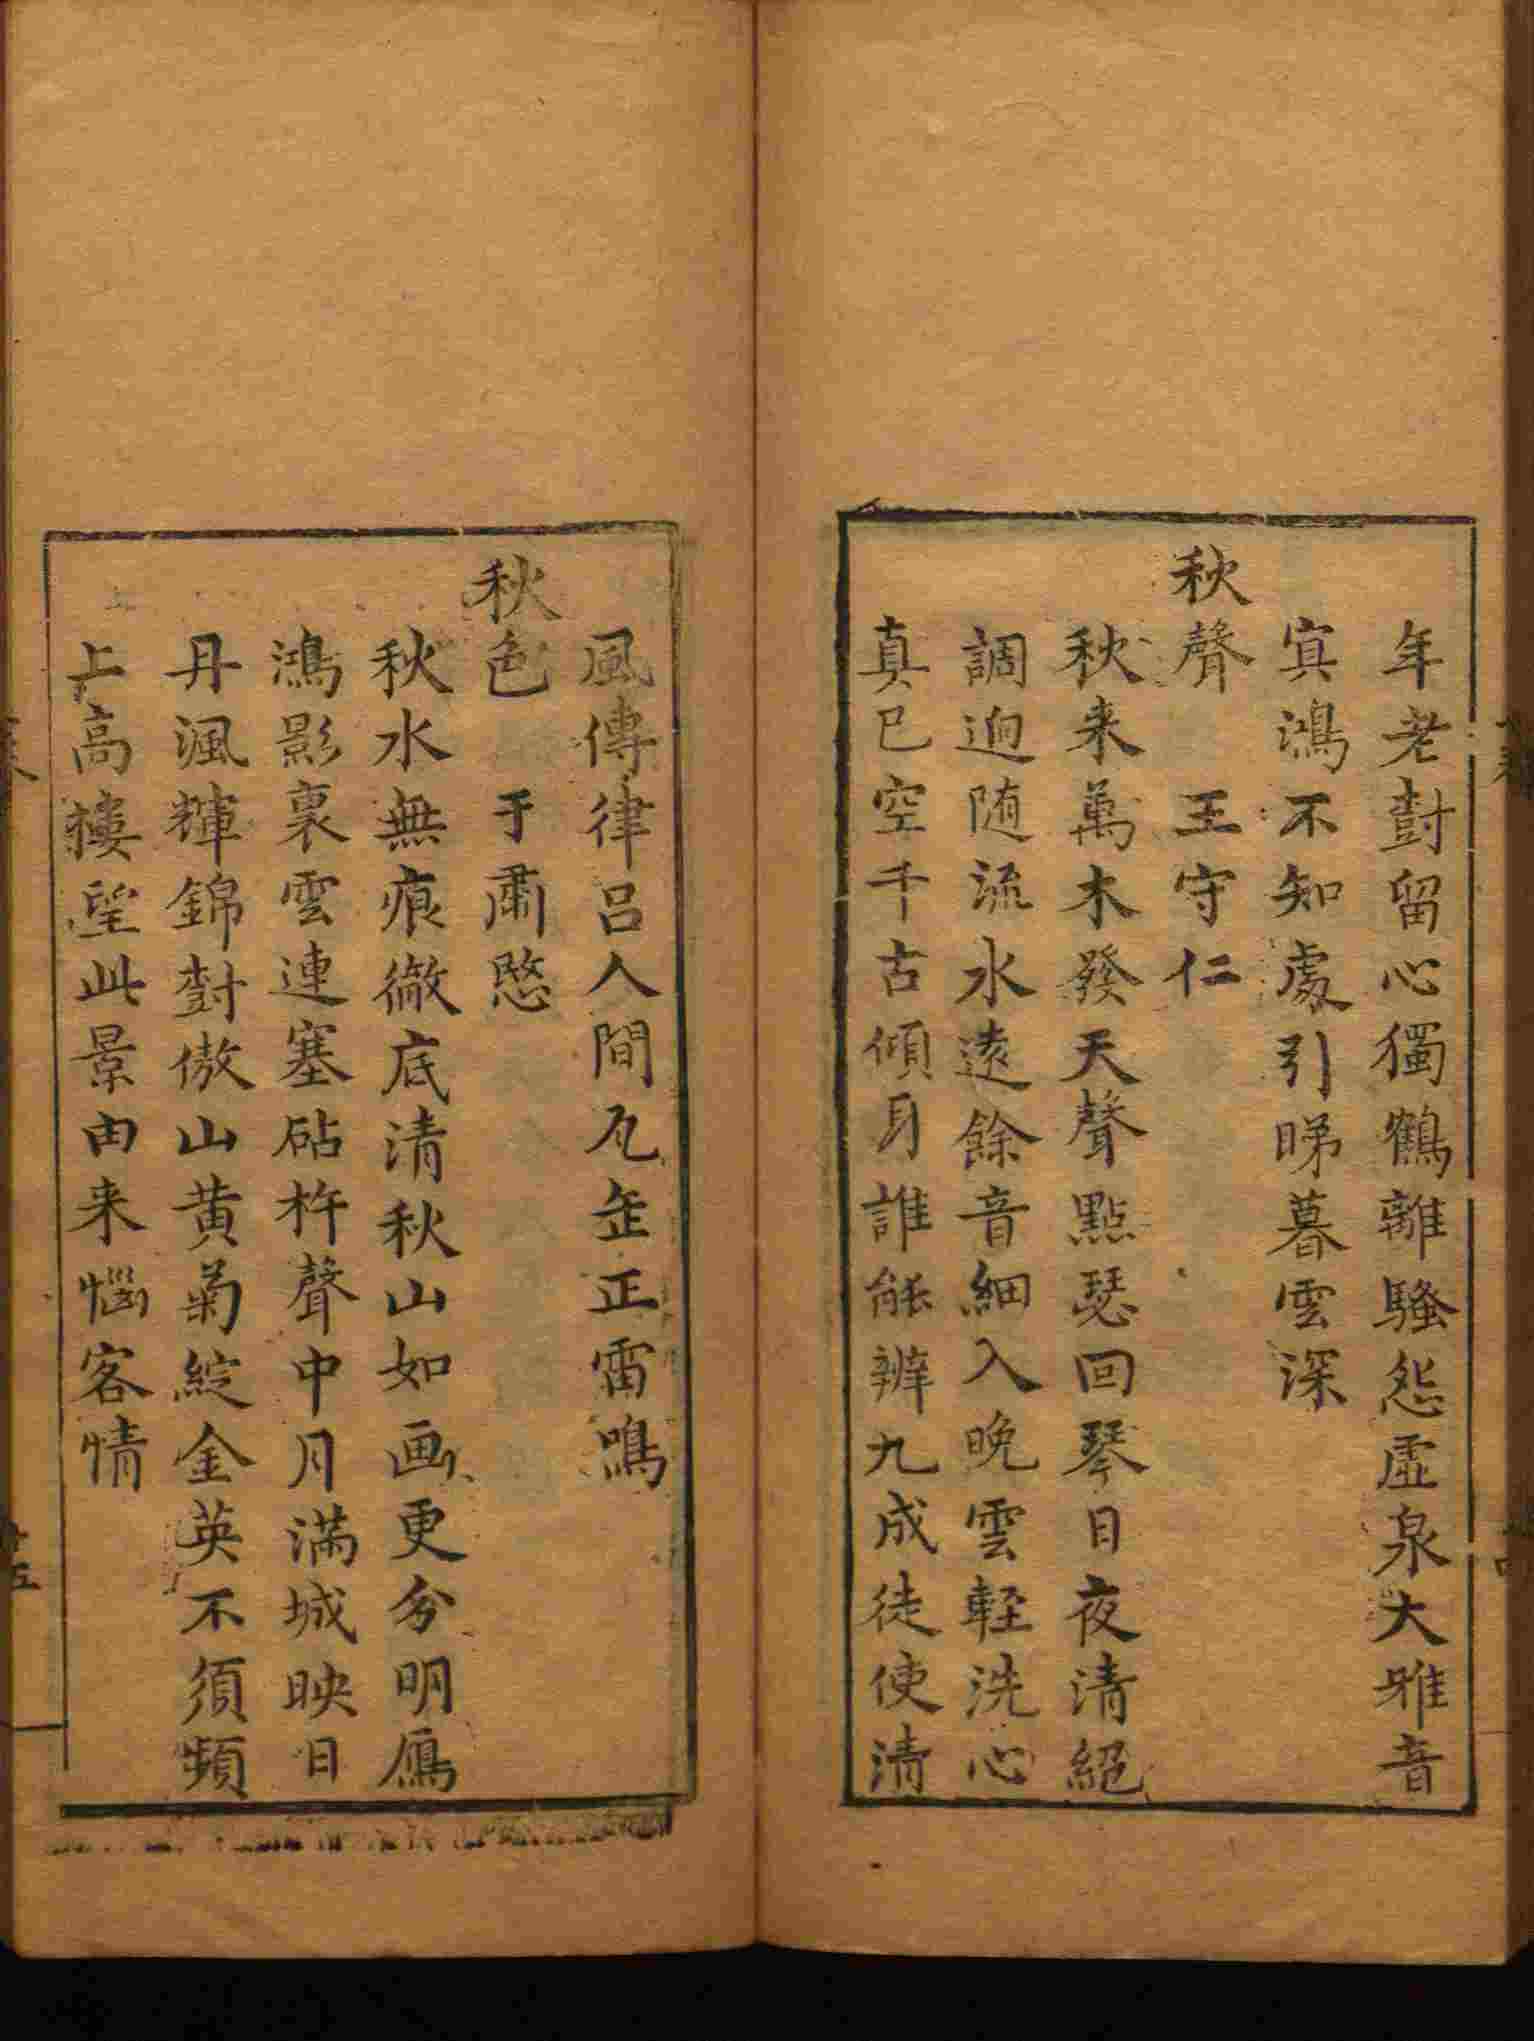 年老對留心獨鶴離騷怨虛泉大雅音
寘鴻不知處引睇暮雲深
秋聲　王守仁
秋来萬木發天聲點瑟回琴日夜清絕
調迥随流水遠餘音細入晚雲輕洗心
真已空千古傾耳誰能辨九成徒使清
風傳律呂人間瓦缶正雷鳴
秋色　于肅愍
秋水無痕徹底清秋山如画更分明鴈
鴻影裏雲連塞砧杵聲中月满城映日
丹渢輝錦對傲山黄菊綻金英不須頻
上高樓望此景由来惱客情